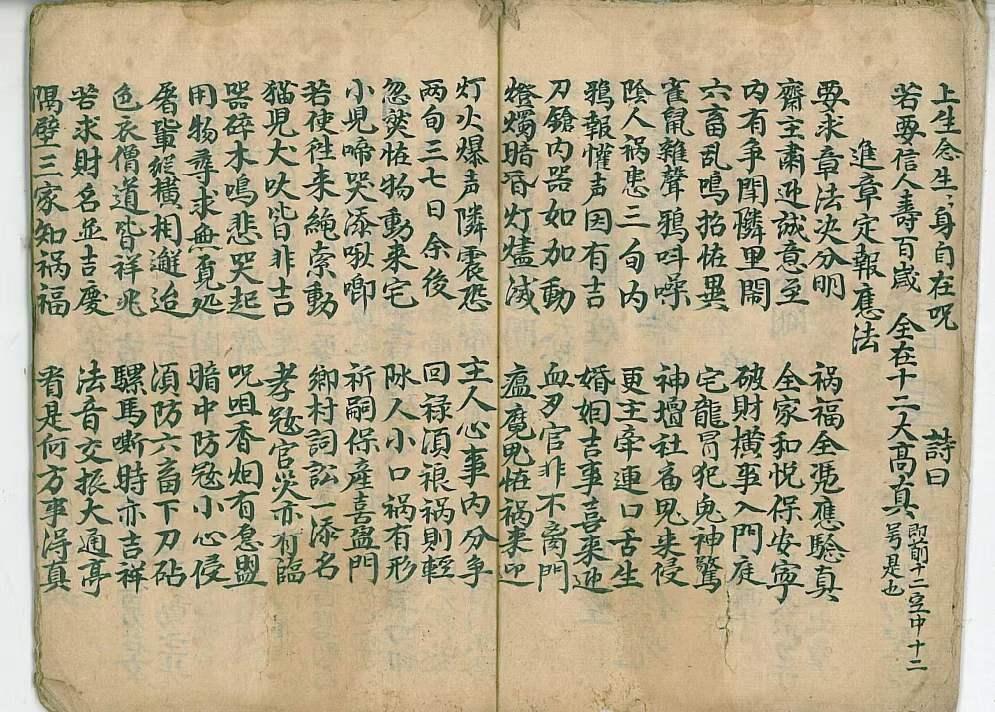 上生念生々身自在呪　詩曰
若要信人壽百歲　全在十二大高真 即前十二空中十二号是也
進章定報應法
要求章法决分明　禍福全凴應驗真
齋主肅迎誠意至　全家和悅保安寧
內有争閗隣里閙　破財横事入門庭
六畜乱鳴招怪異　宅龍冐犯鬼神驚
雀鼠雜聲鴉呌噪　神壇社庙鬼來侵
陰人祸患三旬内　更主牽連口舌生
鴉報懽声因有吉　婚姻吉事喜來迎
刀鎗內器如加動　血刃官非不离門
燈燭暗昏灯燼滅　瘟魔鬼怪祸来
灯火爆声隣震恐　主人心事内分争
两旬三七日余後　回禄須禳祸則輕
忽熒怪物動来宅　阴人小口祸有形
小児啼哭添啾唧　祈嗣保產喜盈門
若使徃来繩索動　鄉村詞訟一添名
猫児犬吠皆非吉　孝冦官灾亦有臨
器碎木鳴悲哭起　呪咀香烟有急盟
用物尋求無覓処　暗中防冦小心侵
屠輩縱横相邂逅　須防六畜下刀砧
色衣僧道皆祥兆　騾馬嘶時亦吉祥
若求財名並吉慶　法音交振大通亭
隅壁三家知祸福　看是何方事得真